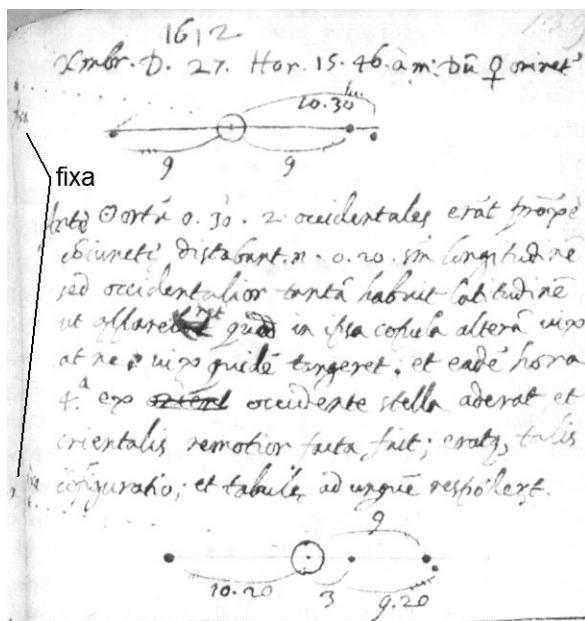 1612
Xmbr. D. 27. Hor. 15. 46. à m. Dū ♀ oriret
10.30
fixa
9 9
fixa
Ortū 0. 30. 2. occidentales erāt
distabant. n. 0. 20. sm longitudinē
sed occidentalior tantā habuit latitudinē
ut in ipsa copula alterā uix
at ne uix quidē tangeret. et eadē hora
4.a ex occidente stella aderat et
orientalis remotior facta fuit; eratq, talis
cōfiguratio; et tabulę ad unguē
fixa
9
10.20 3 9.20